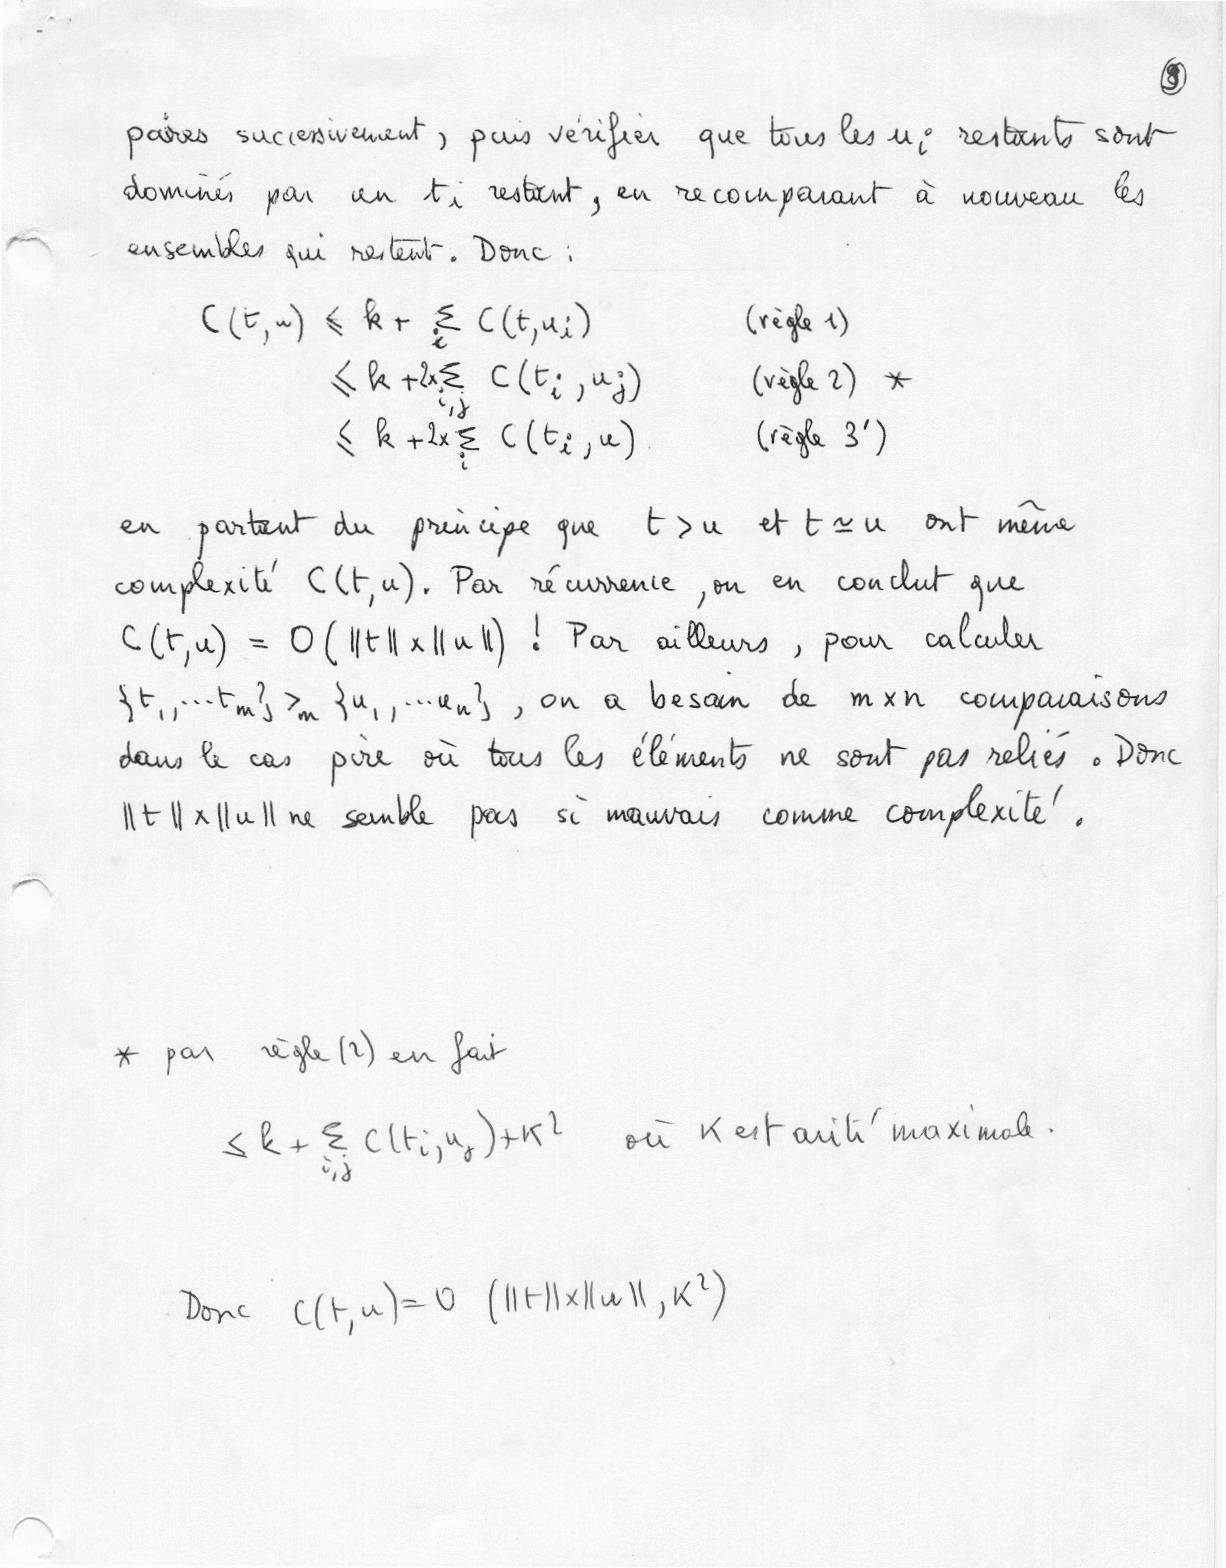 paires successivement, puis vérifier que tous les uj restants sont
dominés par un ti restant, en recomparant à nouveau les
ensembles qui restent. Donc :
C(t,u) ⩽ k + Σ_i C(t,ui) (règle 1)
⩽ k + 2x Σ_i,j C(ti,uj) (règle 2) *
⩽ k + 2x Σ_i C(ti,u) (règle 3')
en partant du principe que t > u et t ≃ u ont même
complexité C(t,u). Par récurrence, on en conclut que
C(t,u) = O(||t|| x ||u||) ! Par ailleurs, pour calculer
{t1,...tm} >m {u1,...un}, on a besoin de m x n comparaisons
dans le cas pire où tous les éléments ne sont pas reliés. Donc
||t|| x ||u|| ne semble pas si mauvais comme complexité.
* par règle (2) en fait
≤ k + Σ_i,j C(ti,uj) + K² où K est arité maximale.
Donc C(t,u) = O (||t||x||u||, K²)